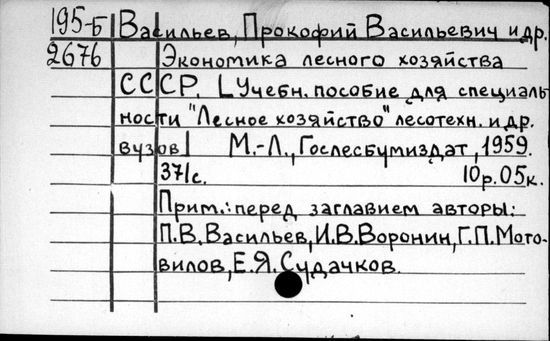 195-Б Васильев, Прокофий Васильевич и др.
2676 Экономика лесного хозяйства
СССР. [Учебн. пособие для специаль-
ности "Лесное хозяйство" лесотехн. и др.
вузов] М.-Л., Гослесбумиздат, 1959.
371с. 10р.05к.
Прим.: перед заглавием авторы:
П.В.Васильев, И.В.Воронин, Г.П.Мото-
вилов, Е.Я.Судачков.